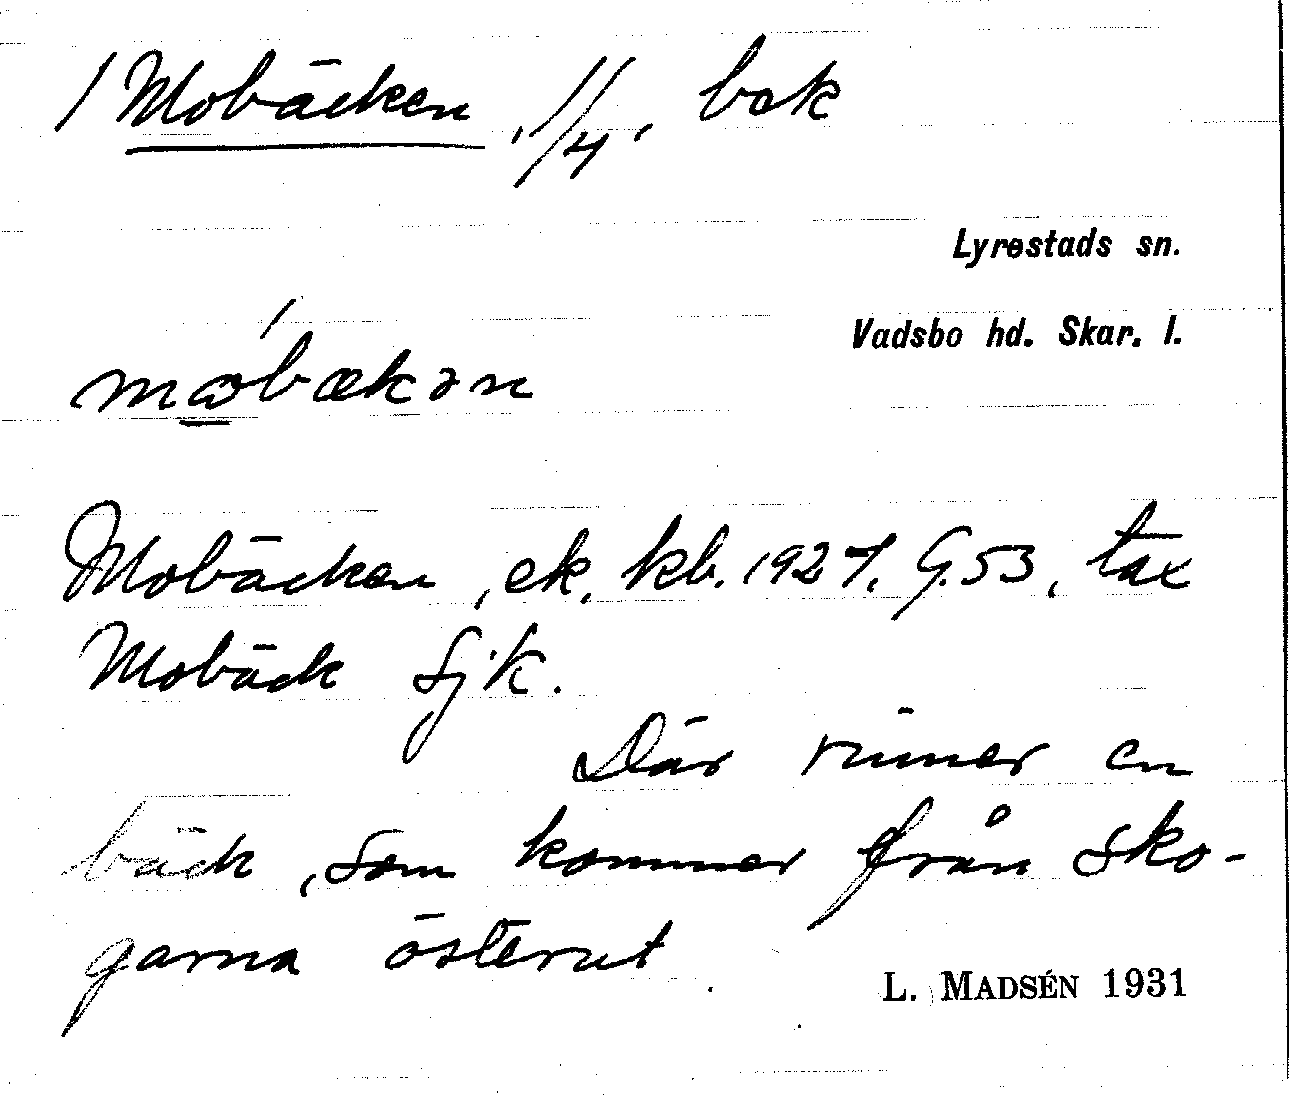 / Mobäcken, 1/4, bok
Lyrestads sn.
Vadsbo hd. Skar. l.
mɷ́bækən
Mobäcken, ek. kb. 1927. G. 53, tax
Mobäck Sjk.
Där rinner en
bäck, som kommer från sko-
garna österut.
L. MADSÉN 1931